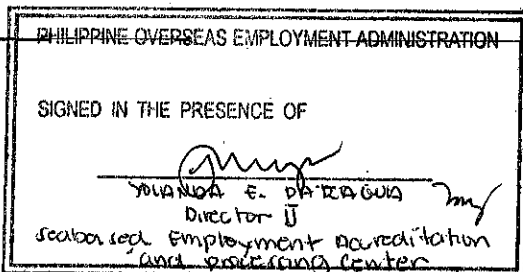 PHILIPPINE OVERSEAS EMPLOYMENT ADMINISTRATION
SIGNED IN THE PRESENCE OF
YOLANDA E. PATERAGUIA
Director II
seabased Employment Accreditation
and processing center